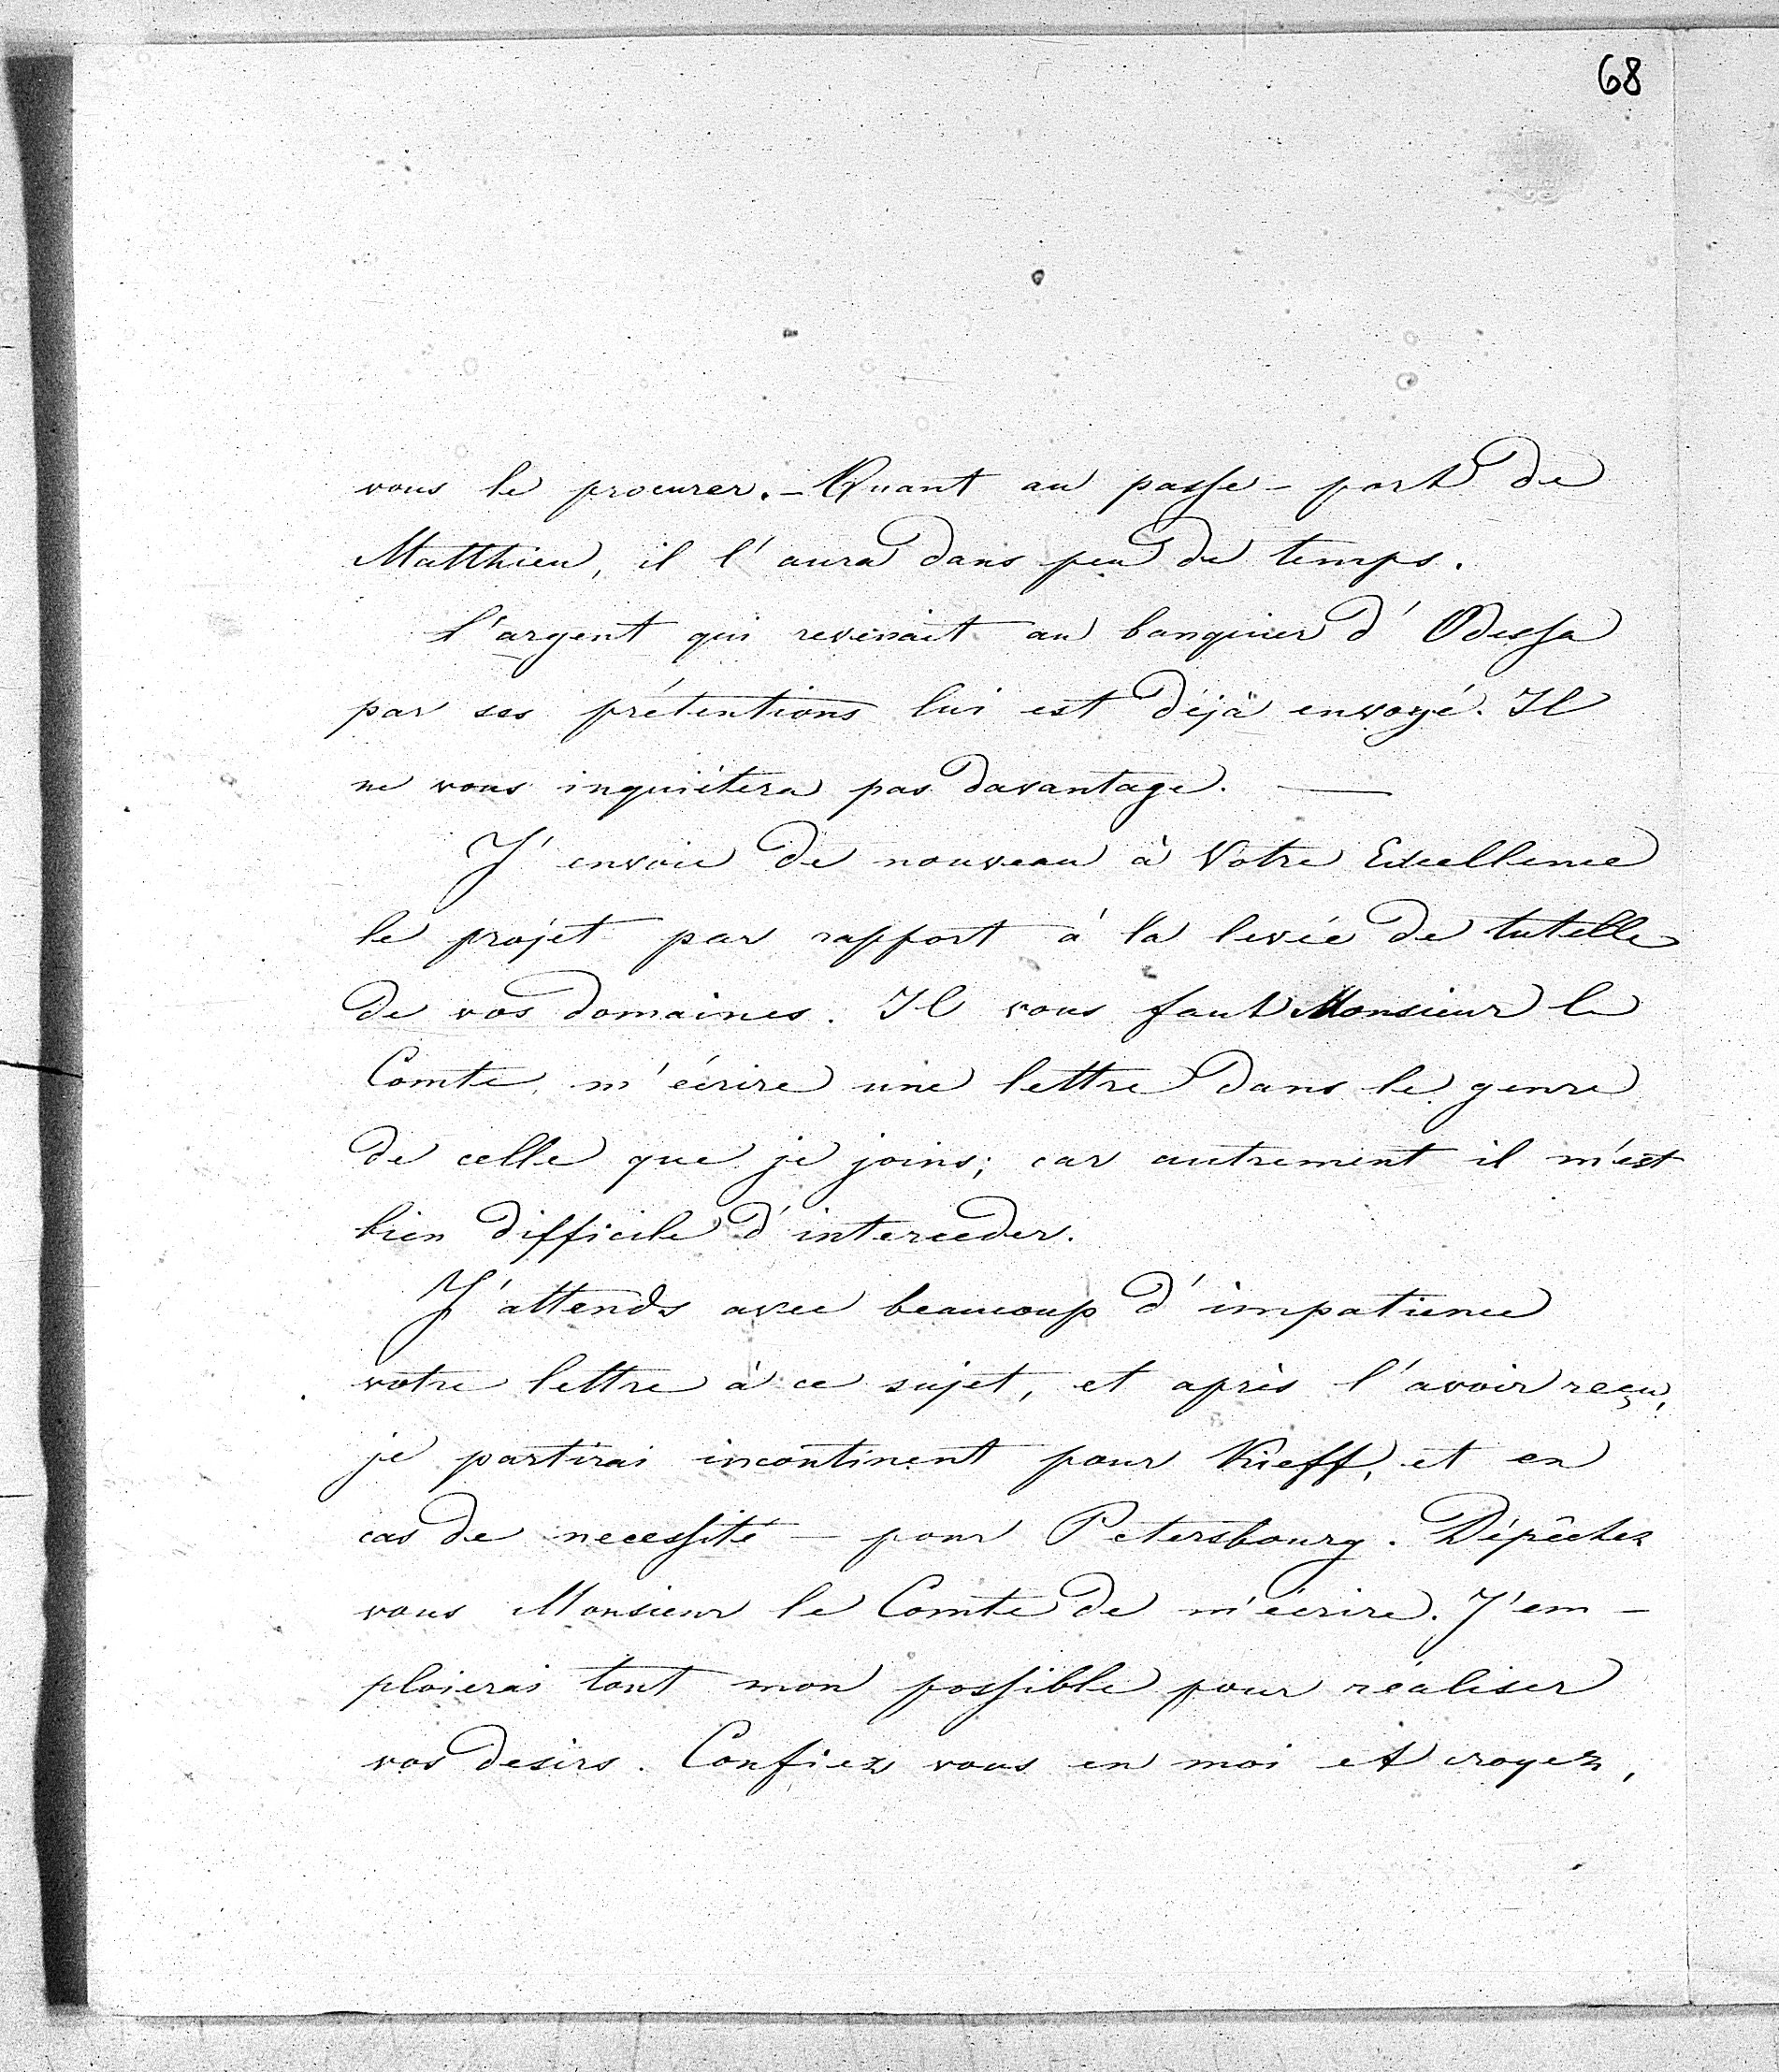 68
vous le procurer. – Quant au passe-port de
Matthieu, il l'aura dans peu de temps.
L'argent qui revenait au banquier d'Odessa
par ses prétentions lui est déjà envoyé. Il
ne vous inquiétera pas davantage. —
J'envoie de nouveau à Votre Excellence
le projet par rapport à la levée de tutelle
de vos domaines. Il vous faut Monsieur le
Comte, m'écrire une lettre dans le genre
de celle que je joins; car autrement il m'est
bien difficile d'interceder.
J'attends avec beaucoup d'impatience
votre lettre à ce sujet, et après l'avoir reçu,
je partirai incontinent pour Kieff, et en
cas de necessité – pour Petersbourg. Dépêchez
vous Monsieur le Comte de m'écrire. J'em-
ploierai tout mon possible pour réaliser
vos desirs. Confiez vous en moi et croyez,